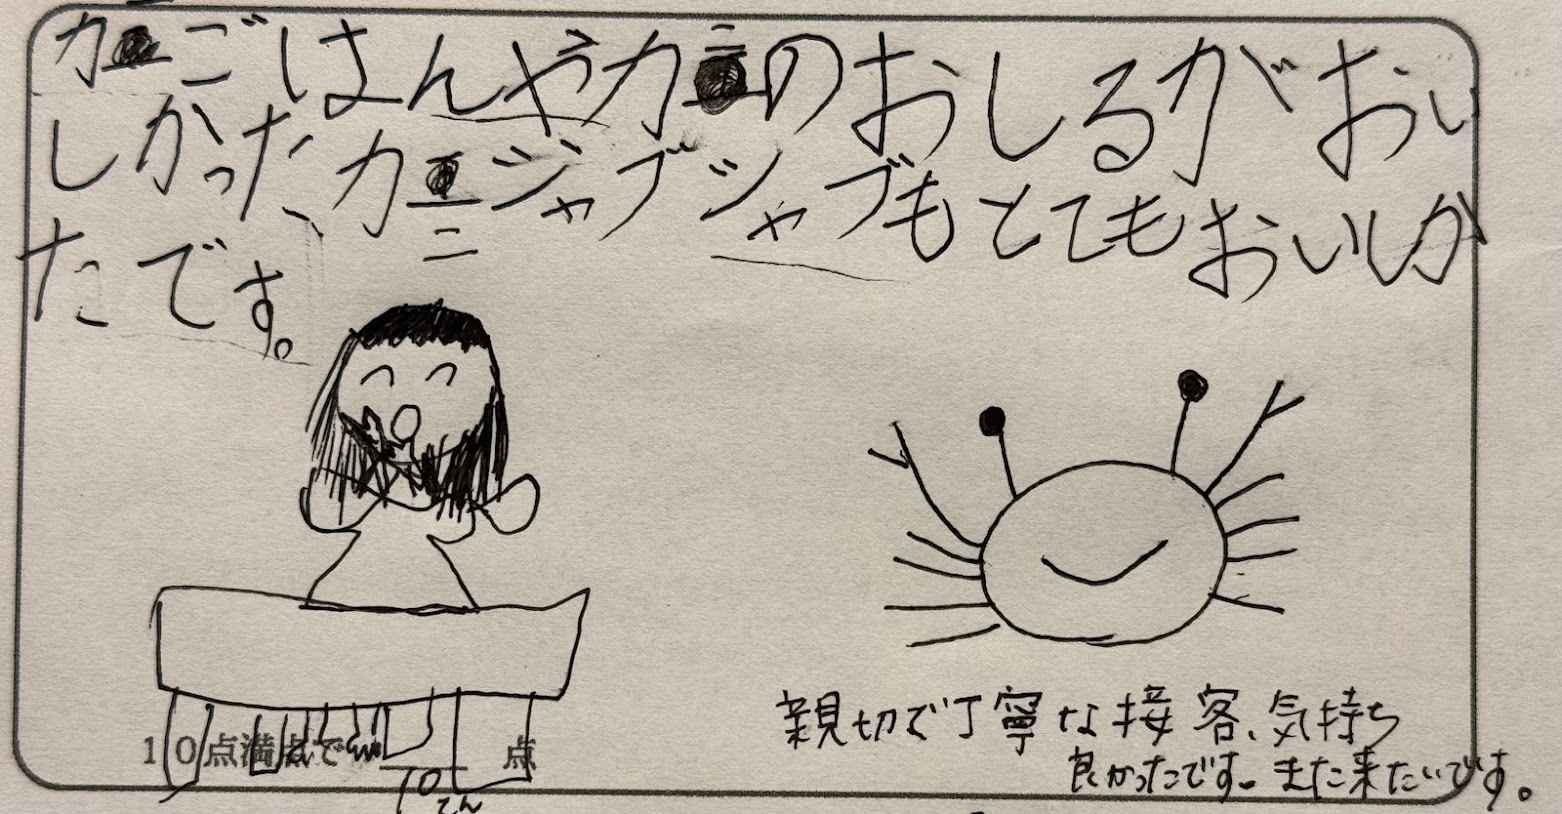 カニごはんやカニのおしるがおい
しかったカニジャブジャブもとてもおいしか
たです。
10点満点で 10てん 点
親切で丁寧な接客、気持ち
良かったです。また来たいです。